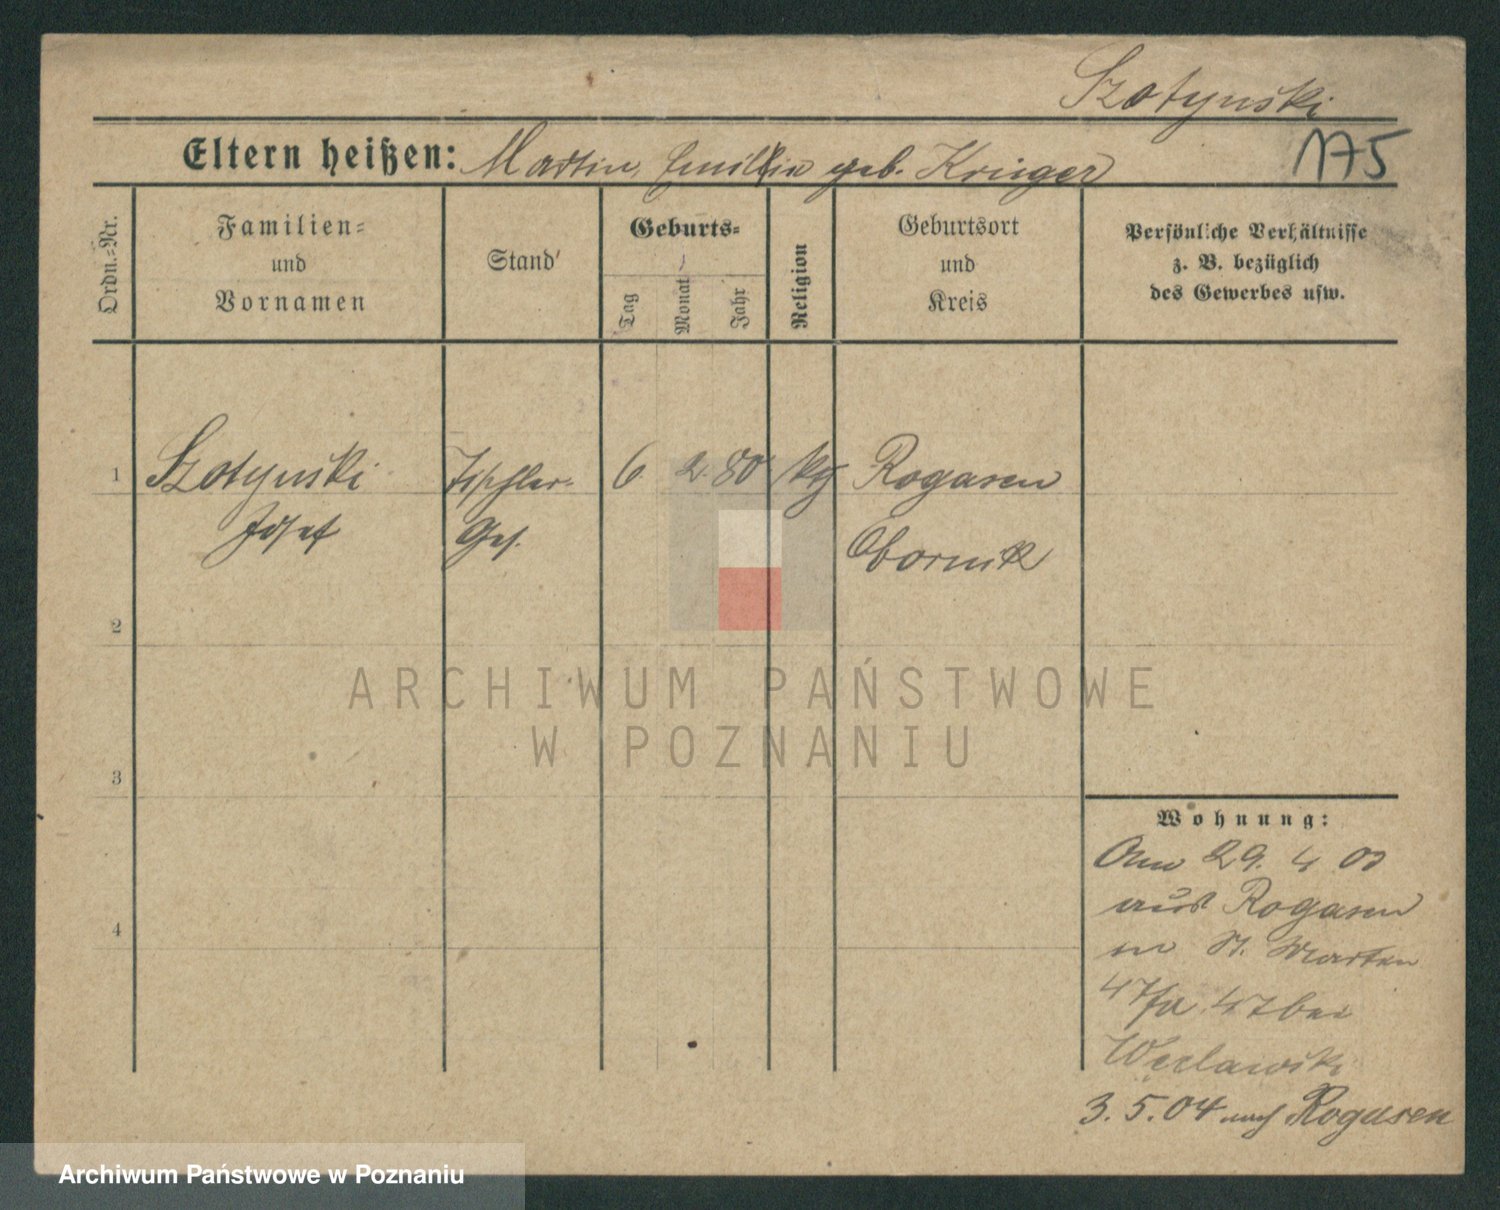 Szotynski
Eltern heißen: Martin, Emilia geb. Krüger
175
Ordn.-Nr.
Familien-
und
Vornamen
Stand
Geburts-
Tag
Monat
Jahr
Religion
Geburtsort
und
Kreis
Persönliche Verhältnisse
z. B. bezüglich
des Gewerbes usw.
1 Szotynski Tischler- 6 2. 80 kg Rogasen
Josef Ges. Obornik
2
3
4
ARCHIWUM PAŃSTWOWE
W POZNANIU
Wohnung:
Am 29. 4 03
aus Rogasen
in St. Martin
47 bei
Węclawski
3. 5. 04 nach Rogasen
Archiwum Państwowe w Poznaniu